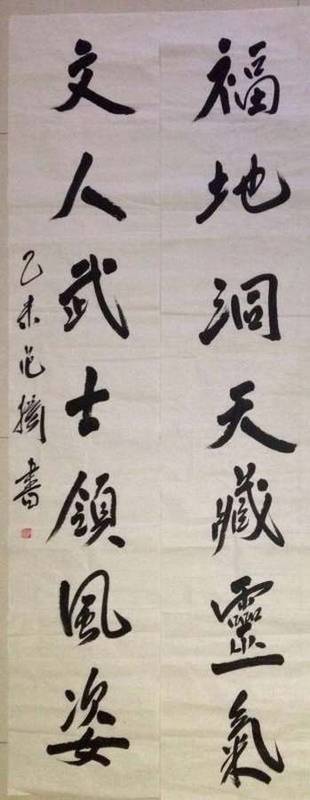 福地洞天藏靈氣
文人武士領風姿
乙未 范 書